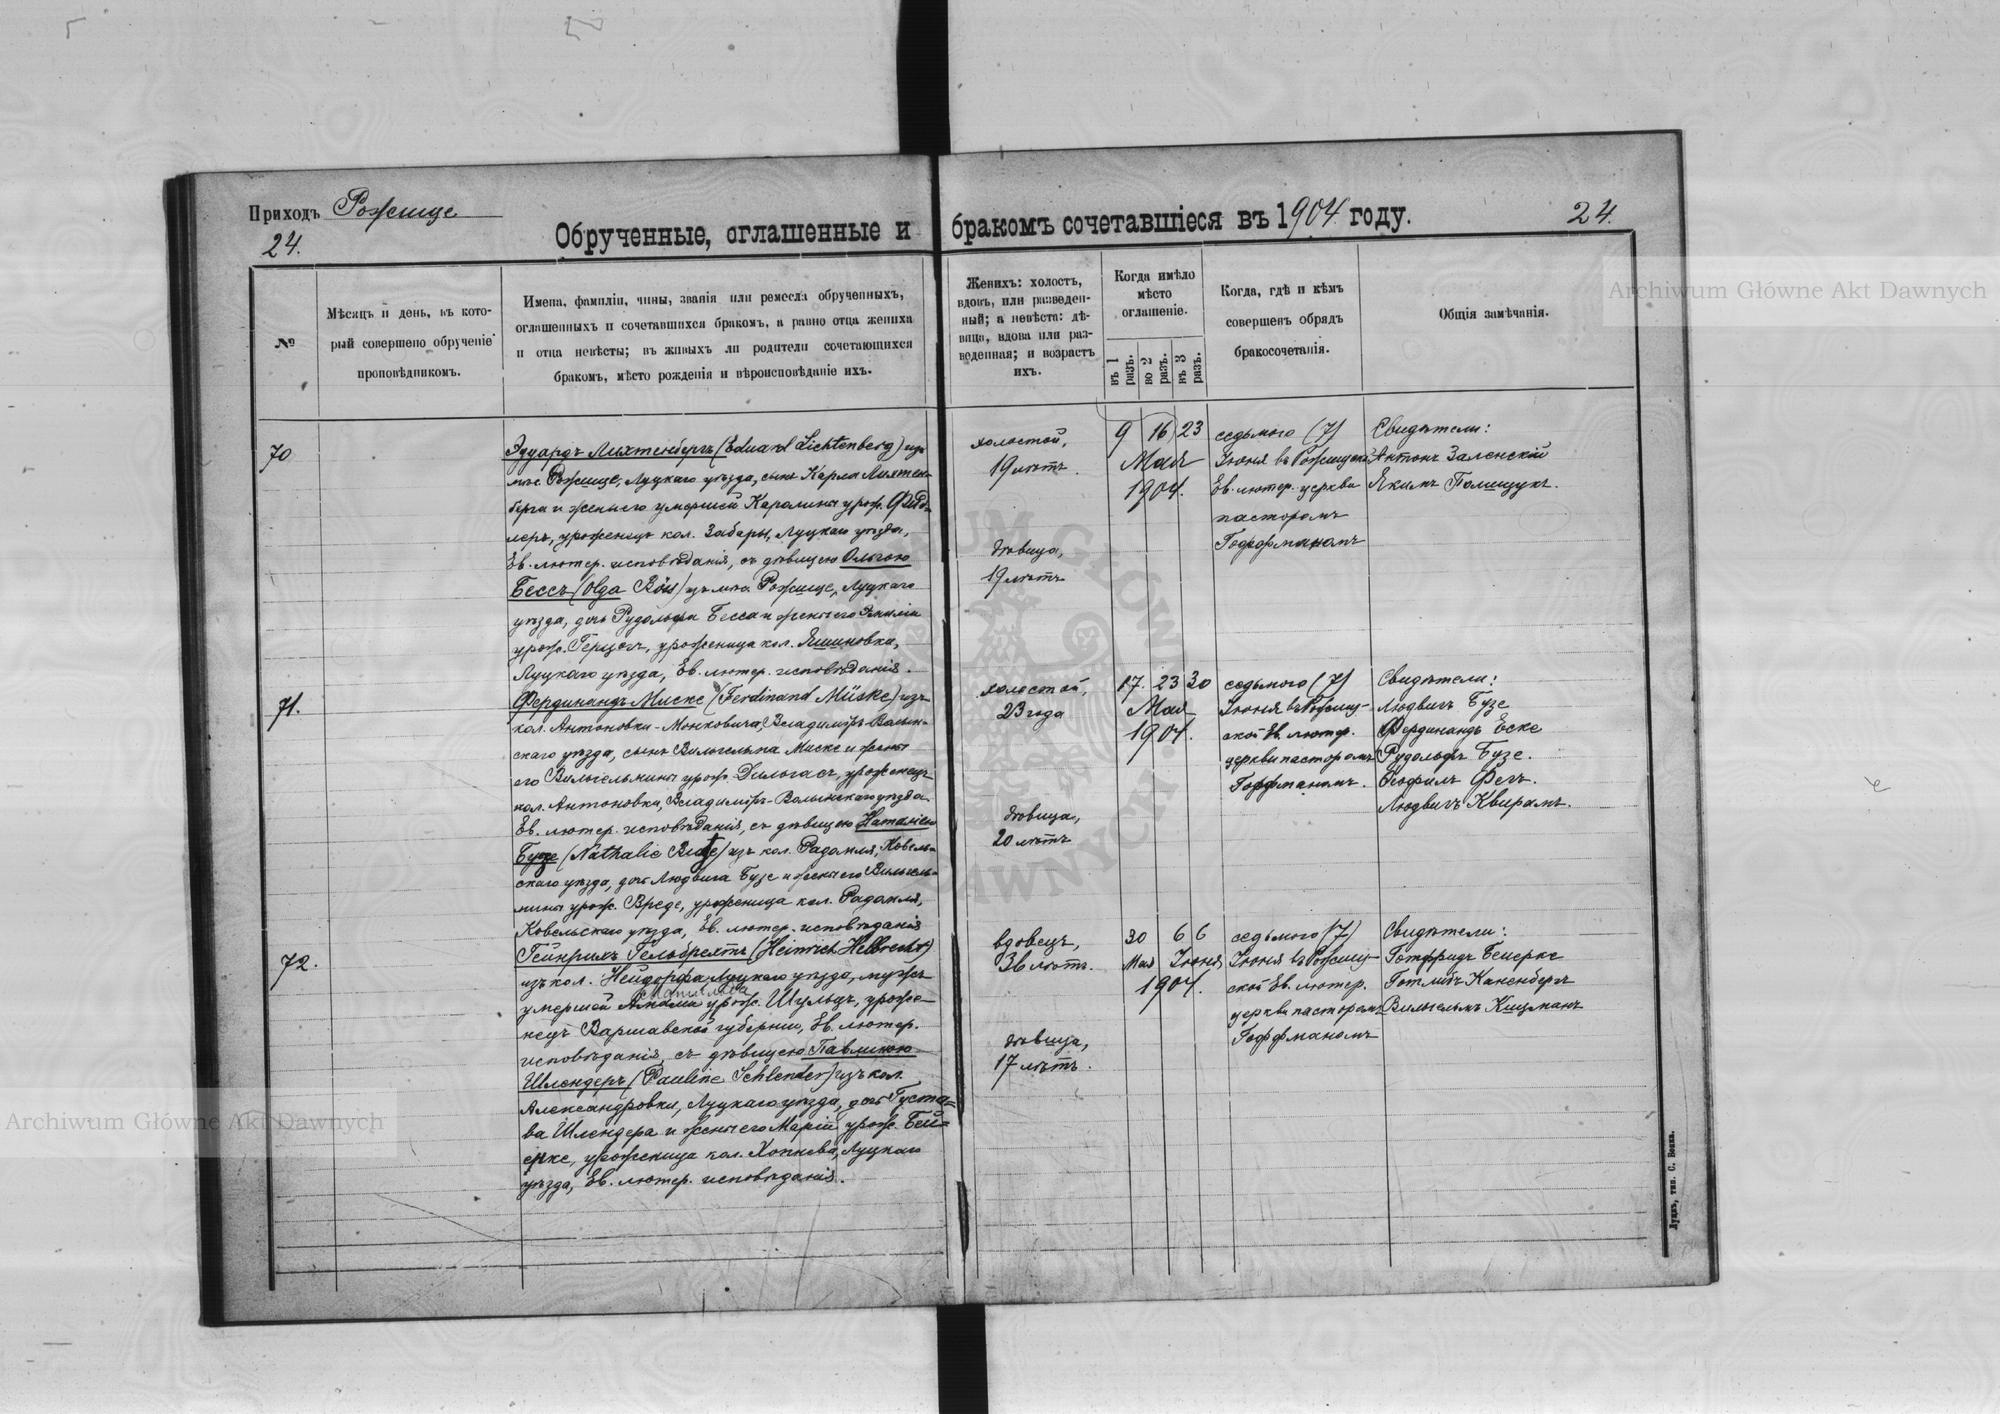 Приходъ Рожище
24.
Обрученные, оглашенные и бракомъ сочетавшіеся въ 1904 году.
24.
№
Мѣсяцъ и день, въ кото-
рый совершено обрученіе
проповѣдникомъ.
Имена, фамиліи, чины, званія или ремесла обрученныхъ,
оглашенныхъ и сочетавшихся бракомъ, а равно отца жениха
и отца невѣсты; въ живыхъ ли родители сочетающихся
бракомъ, мѣсто рожденія и вѣроисповѣданіе ихъ.
Женихъ: холостъ,
вдовъ, или разведен-
ный; а невѣста: дѣ-
вица, вдова или раз-
веденная; и возрастъ
ихъ.
Когда имѣло
мѣсто
оглашеніе.
въ 1 разъ.
во 2 разъ.
въ 3 разъ.
Когда, гдѣ и кѣмъ
совершенъ обрядъ
бракосочетанія.
Общія замѣчанія.
70
Эдуардъ Лихтенбергъ (Eduard Lichtenberg) изъ
мѣс. Рожище, Луцкаго уѣзда, сынъ Карла Лихтен-
берга и жены его умершей Каролины урож. Фид-
леръ, уроженецъ кол. Забары, Луцкаго уѣзда,
Ев. лютер. исповѣданія, съ дѣвицею Ольгою
Бессъ (Olga Böss) изъ мѣс. Рожище, Луцкаго
уѣзда, дочь Рудольфа Бесса и жены его Эмиліи
урож. Герцогъ, уроженица кол. Яшиновка,
Луцкаго уѣзда, Ев. лютер. исповѣданія.
холостой,
19 лѣтъ.
дѣвица,
19 лѣтъ
9 16 23
Мая
1904.
седьмого (7)
Іюня въ Рожищской
Ев. лютер. церкви
пасторомъ
Гоффманомъ
Свидѣтели:
Антонъ Заленскій
Якимъ Полищукъ.
71.
Фердинандъ Миске (Ferdinand Müske) изъ
кол. Антоновки-Монковича, Владиміръ-Волын-
скаго уѣзда, сынъ Вильгельма Миске и жены
его Вильгельмины урож. Дильгасъ, уроженецъ
кол. Антоновки, Владиміръ-Волынскаго уѣзда
Ев. лютер. исповѣданія, съ дѣвицею Наталіею
Бузе (Nathalie) изъ кол. Радомля, Ковель-
скаго уѣзда, дочь Людвига Бузе и жены его Вильгель-
мины урож. Вреде, уроженица кол. Радомля,
Ковельскаго уѣзда, Ев. лютер. исповѣданія
холостой,
23 года
дѣвица,
20 лѣтъ
17. 23 30
Мая
1904.
седьмого (7)
Іюня въ Рожищ-
ской Ев. лютер.
церкви пасторомъ
Гоффманомъ.
Свидѣтели:
Людвигъ Бузе
Фердинандъ Еске
Рудольфъ Бузе.
Теофилъ Фегъ.
Людвигъ Квирамъ.
72.
Гейнрихъ Гельбрехтъ (Heinrich Helbrecht)
изъ кол. Нейдорфа, Луцкаго уѣзда, мужъ
умершей урож. Шульцъ, уроже-
нецъ Варшавской губерніи, Ев. лютер.
исповѣданія, съ дѣвицею Павлиною
Шлендеръ (Pauline Schlender) изъ кол.
Александровки, Луцкаго уѣзда, дочь Густа-
ва Шлендера и жены его Маріи урож. Бей-
ерке, уроженица кол. Копчева, Луцкаго
уѣзда, Ев. лютер. исповѣданія.
вдовецъ,
36 лѣтъ.
дѣвица,
17 лѣтъ.
30 6 6
Мая Іюня
1904.
седьмого (7)
Іюня въ Рожищ-
ской Ев. лютер.
церкви пасторомъ
Гоффманомъ
Свидѣтели:
Готфридъ Бейерке
Готлибъ Каненбергъ
Вильгельмъ Кицманъ
Луцкъ, тип. С. Бокка.
Archiwum Główne Akt Dawnych
Archiwum Główne Akt Dawnych